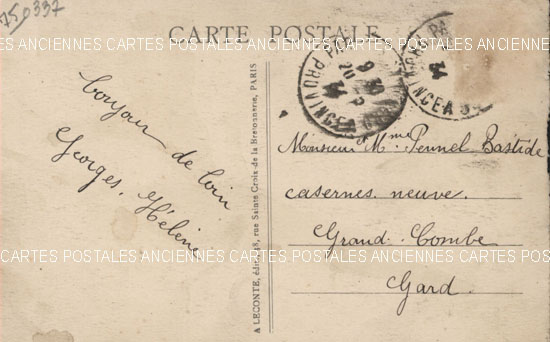 750337
CARTE POSTALE
CARTES POSTALES ANCIENNES CARTES POSTALES ANCIENNES CARTES POSTALES ANCIENNES
bonjour
de loin
Georges, Hélène
A LECONTE, édit., 38, rue Sainte-Croix-de-la-Bretonnerie, PARIS
Monsieur Mme Pennel Bastide
casernes neuve.
Grand. Combe
Gard.
CARTES POSTALES ANCIENNES CARTES POSTALES ANCIENNES CARTES POSTALES ANCIENNES